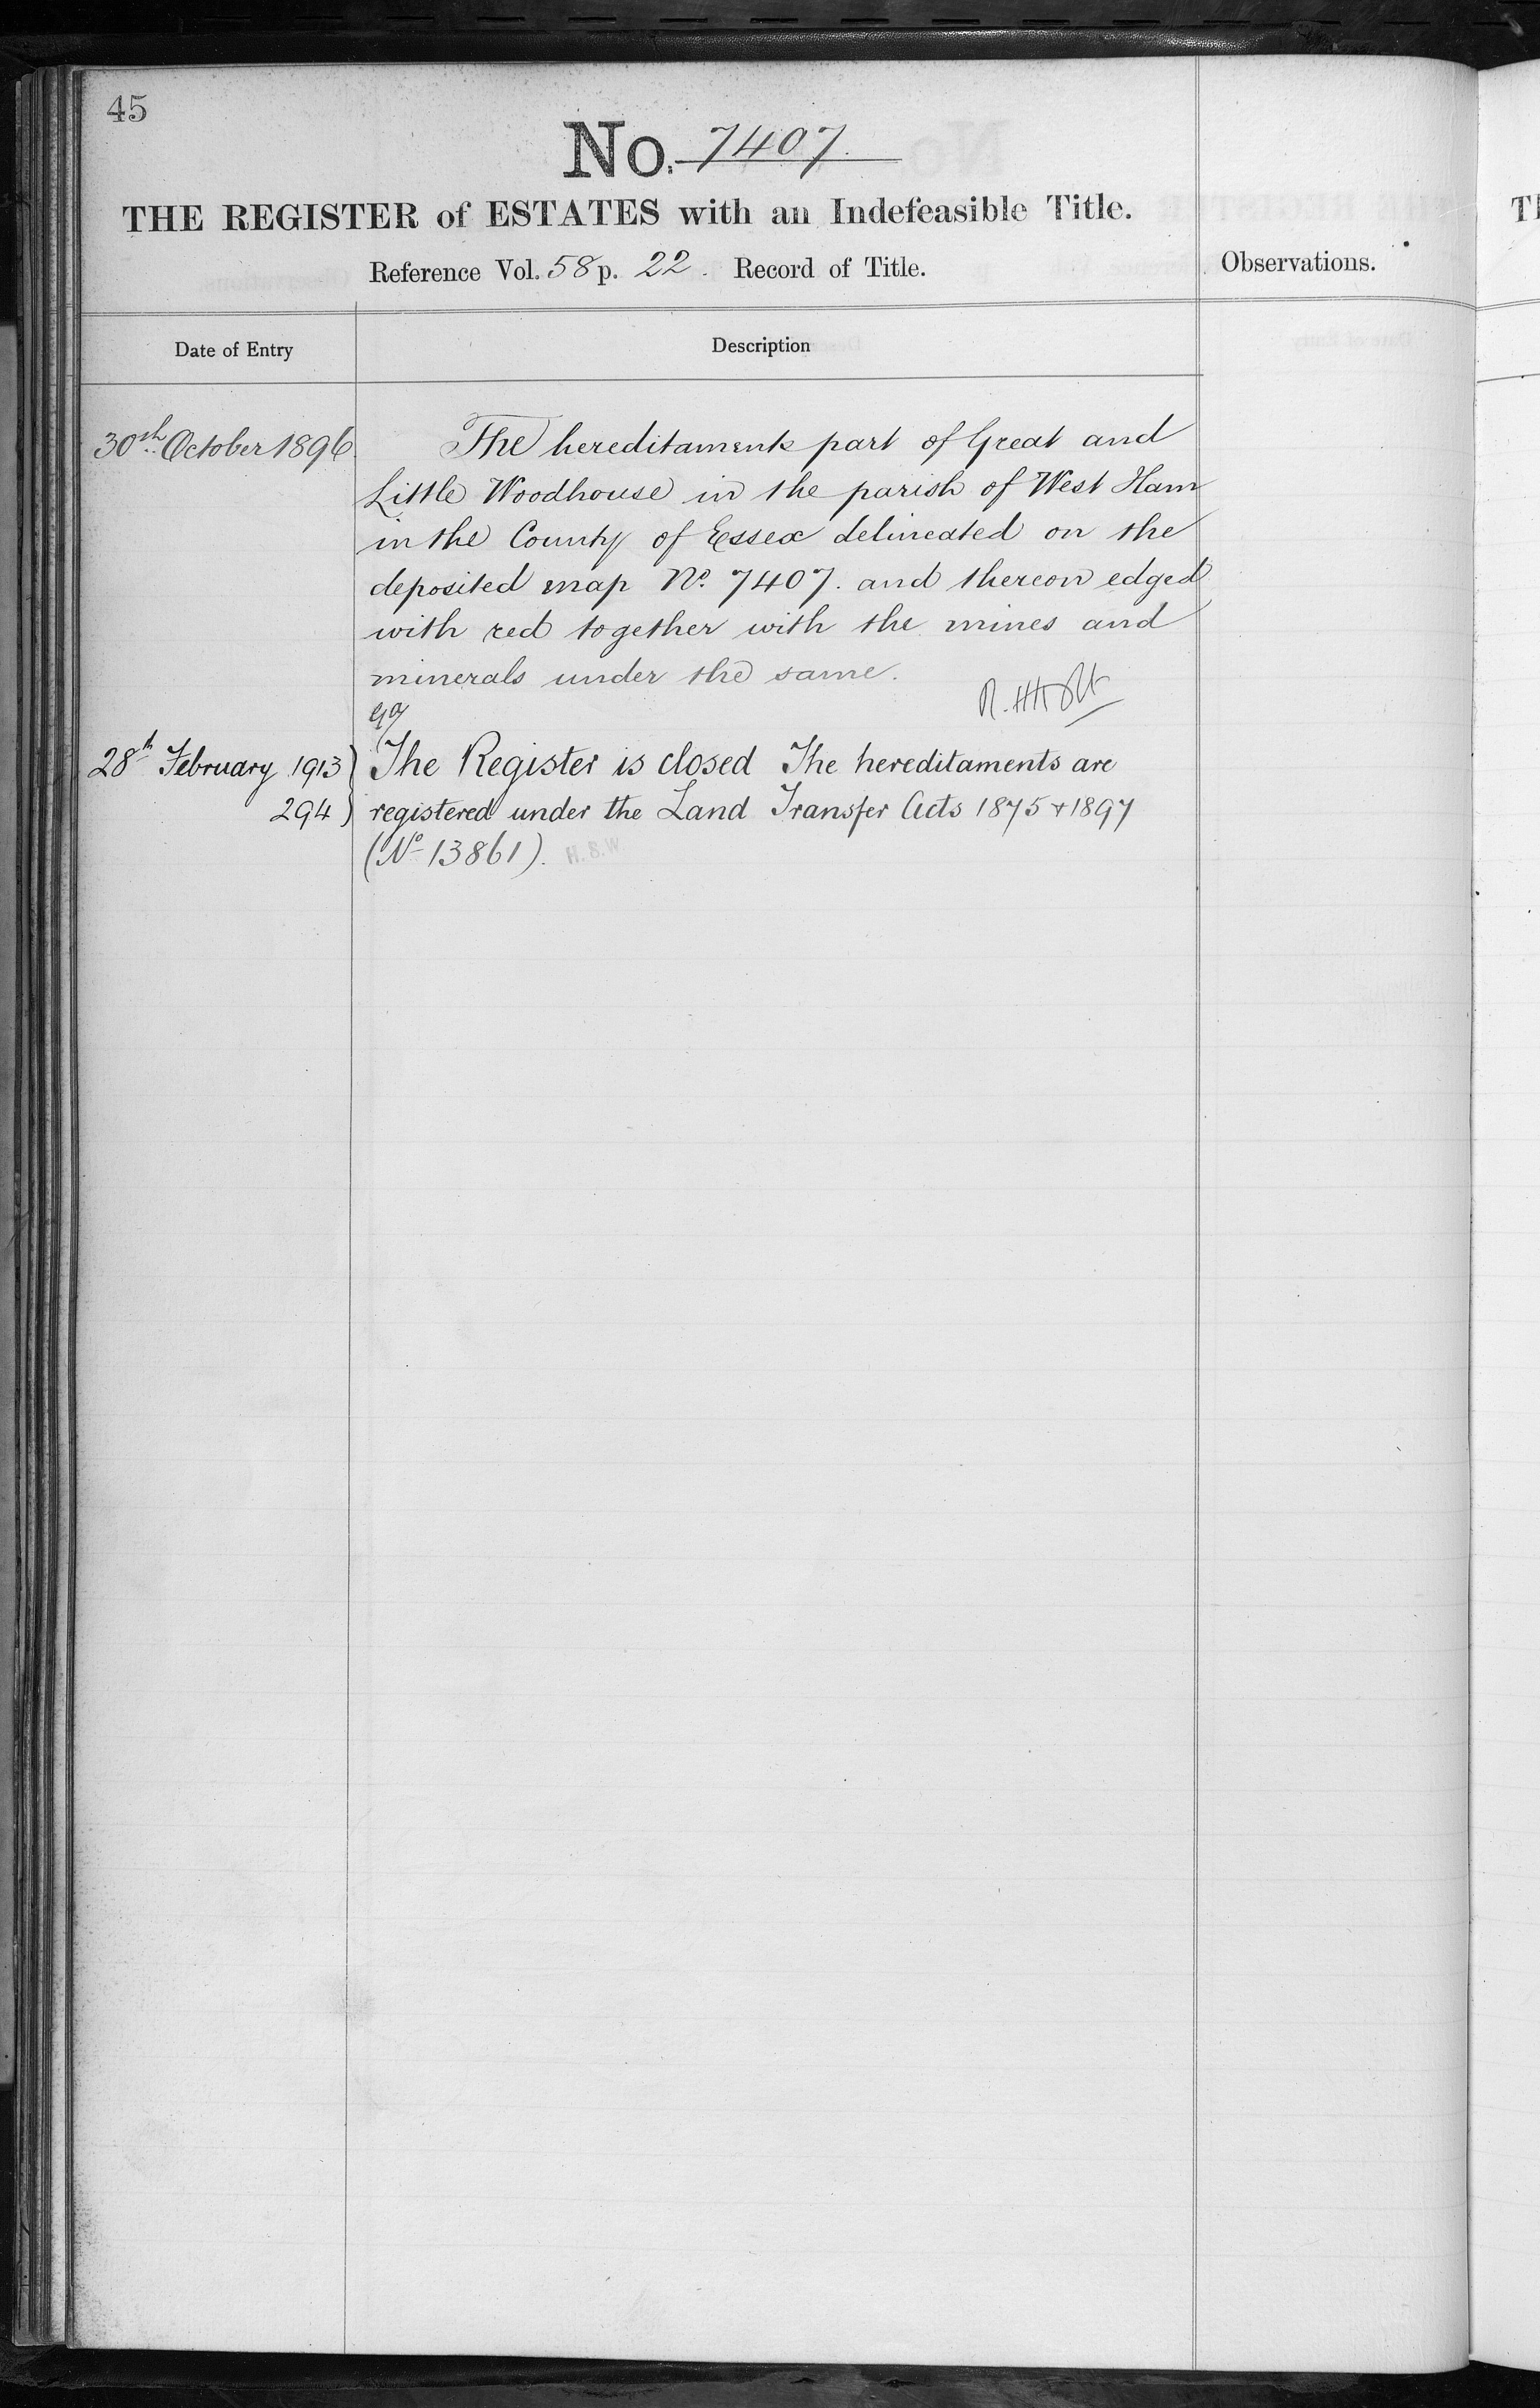 45
No. 7407.
THE REGISTER of ESTATES with an Indefeasible Title.
Reference Vol. 58 p. 22. Record of Title.
Observations.
Date of Entry
Description
30th October 1896
The hereditaments part of Great and
Little Woodhouse in the parish of West Ham
in the County of Essex delineated on the
deposited map No. 7407. and thereon edged
with red together with the mines and
minerals under the same.
28th February 1913
294
The Register is closed The hereditaments are
registered under the Land Transfer Acts 1875 & 1897
(No 13861). H.S.W